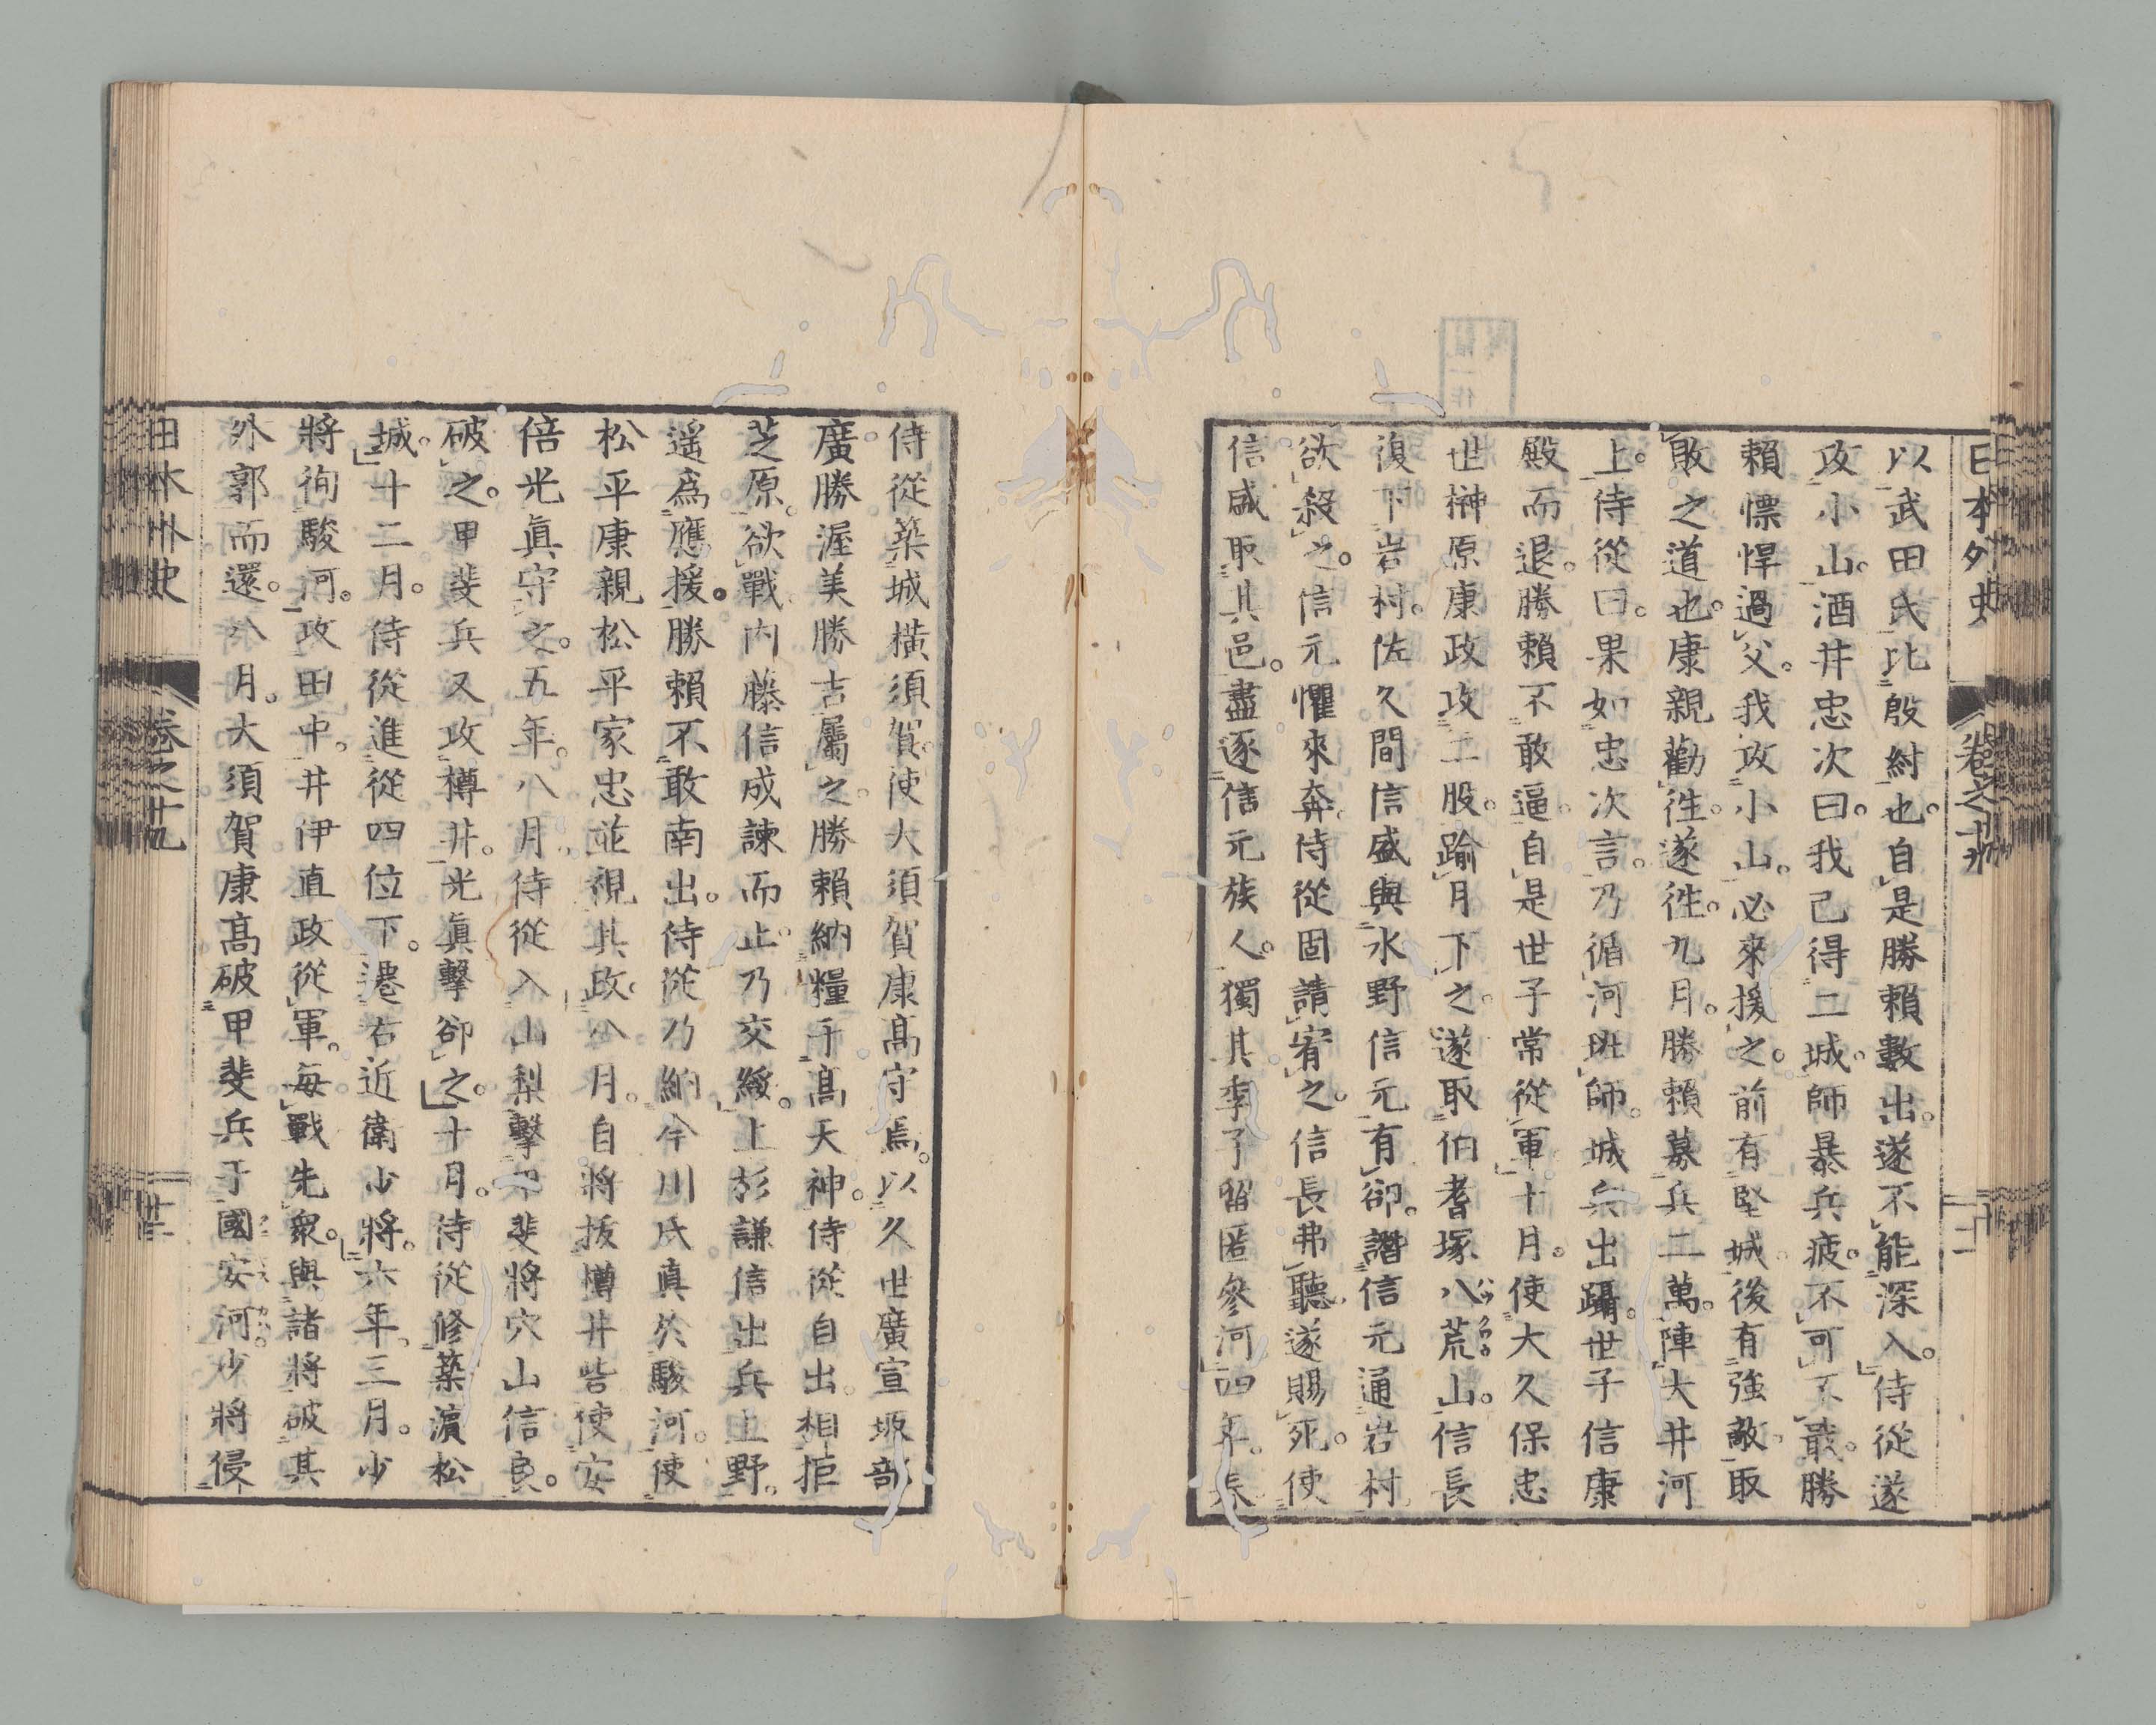 日本外史 卷之十九 二十一
以武田氏比殷紂也。自是勝賴數出。遂不能深入。侍從遂
攻小山。酒井忠次曰。我已得二城。師暴兵疲。不可不嚴。勝
賴慓悍過父。我攻小山。必來援之。前有堅城。後有強敵。取
敗之道也。康親勸徃。遂徃。九月。勝賴募兵二萬。陣大井河
上。侍從曰。果如忠次言。乃循河班師。城兵出躡。世子信康
殿而退。勝賴不敢逼。自是世子常從軍。十月。使大久保忠
世榊原康政攻二股。踰月下之。遂取伯耆塚八荒山。信長
復下岩村。佐久間信盛與水野信元有卻。譖信元通岩村。
欲殺之。信元懼來奔。侍從固請宥之。信長弗聽。遂賜死。使
信盛取其邑。盡逐信元族人。獨其季子留匿參河。四年。春
侍從築城橫須賀。使大須賀康高守焉。以久世廣宣坂部
廣勝渥美勝吉屬之。勝賴納糧于高天神。侍從自出。相拒
芝原。欲戰。內藤信成諫而止。乃交綏。上杉謙信出兵上野。
遥爲應援。勝賴不敢南出。侍從乃納今川氏真於駿河。使
松平康親松平家忠並視其政。八月。自將拔樽井砦。使安
倍光眞守之。五年。八月。侍從入山梨。擊甲斐將穴山信良。
破之。甲斐兵又攻樽井。光眞擊卻之。十月。侍從修築濵松
城。十二月。侍從進從四位下。遷右近衛少將。六年。三月。少
將徇駿河。攻田中。井伊直政從軍。每戰先衆。與諸將破其
外郭而還。八月。大須賀康高破甲斐兵于國安河。少將侵
日本外史 卷之十九 廿二